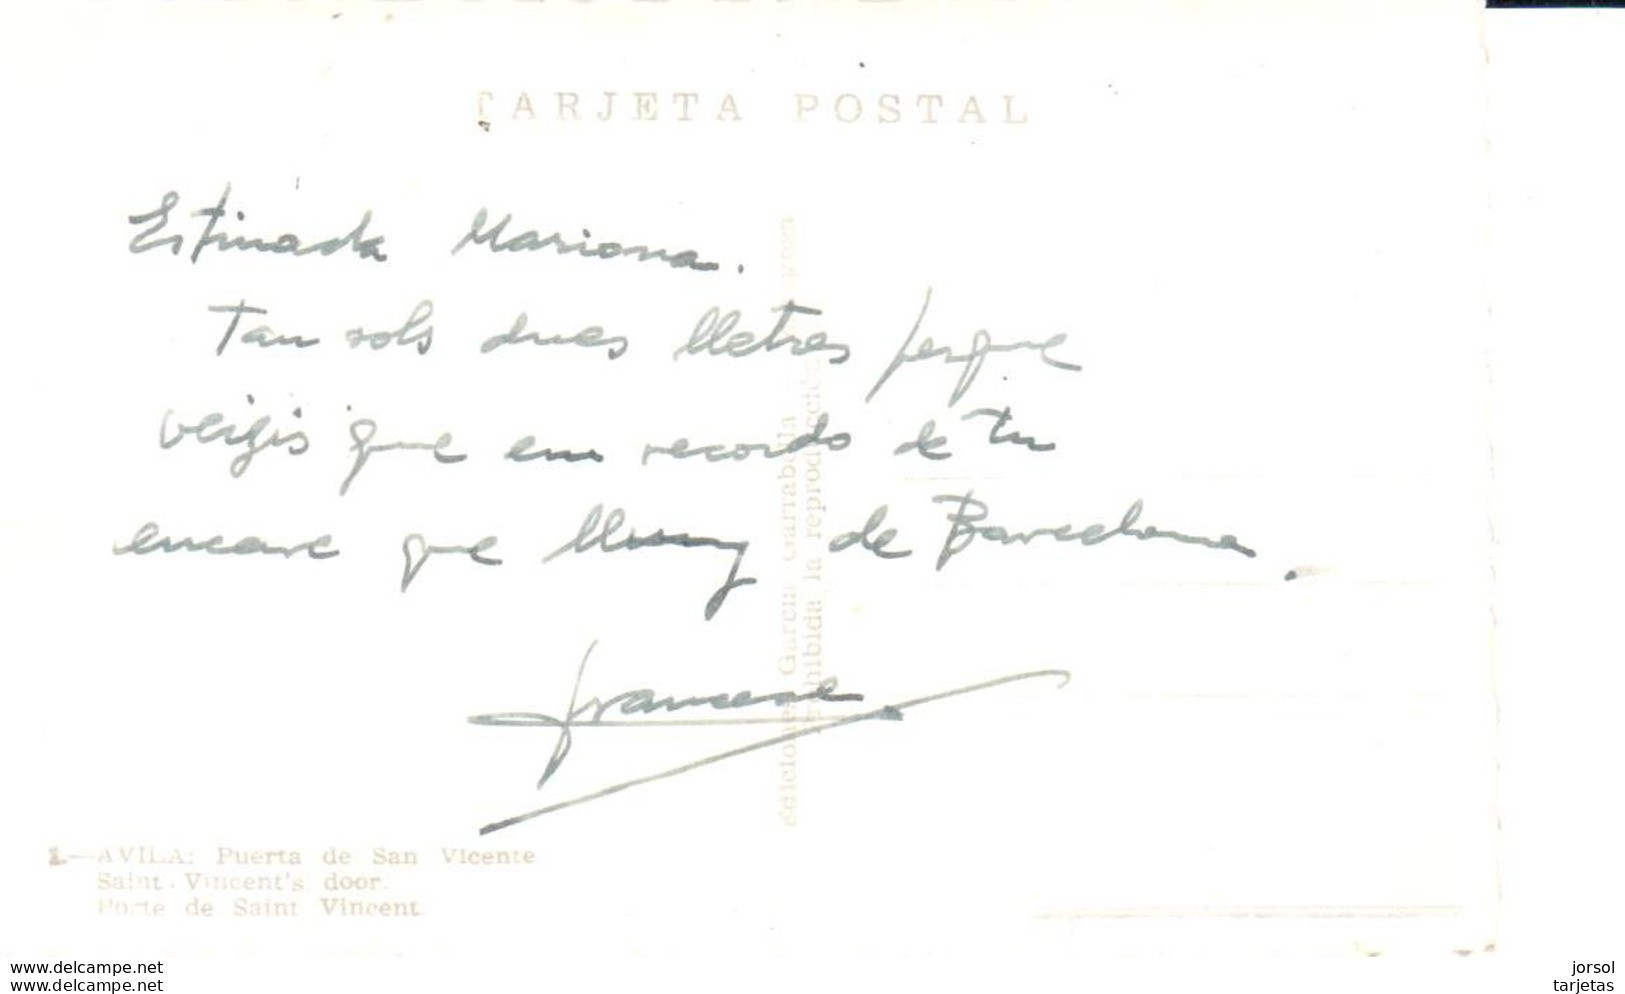 TARJETA POSTAL
Estimada Mariona.
Tan sols dues lletres perque
vegis que em recordo de tu
encare que lluny de Barcelona.
Francesc
Ediciones García Garrabella
Prohibida la reproducción
1.—AVILA: Puerta de San Vicente
Saint. Vincent's door.
Porte de Saint Vincent
www.delcampe.net
www.delcampe.net
jorsol
tarjetas